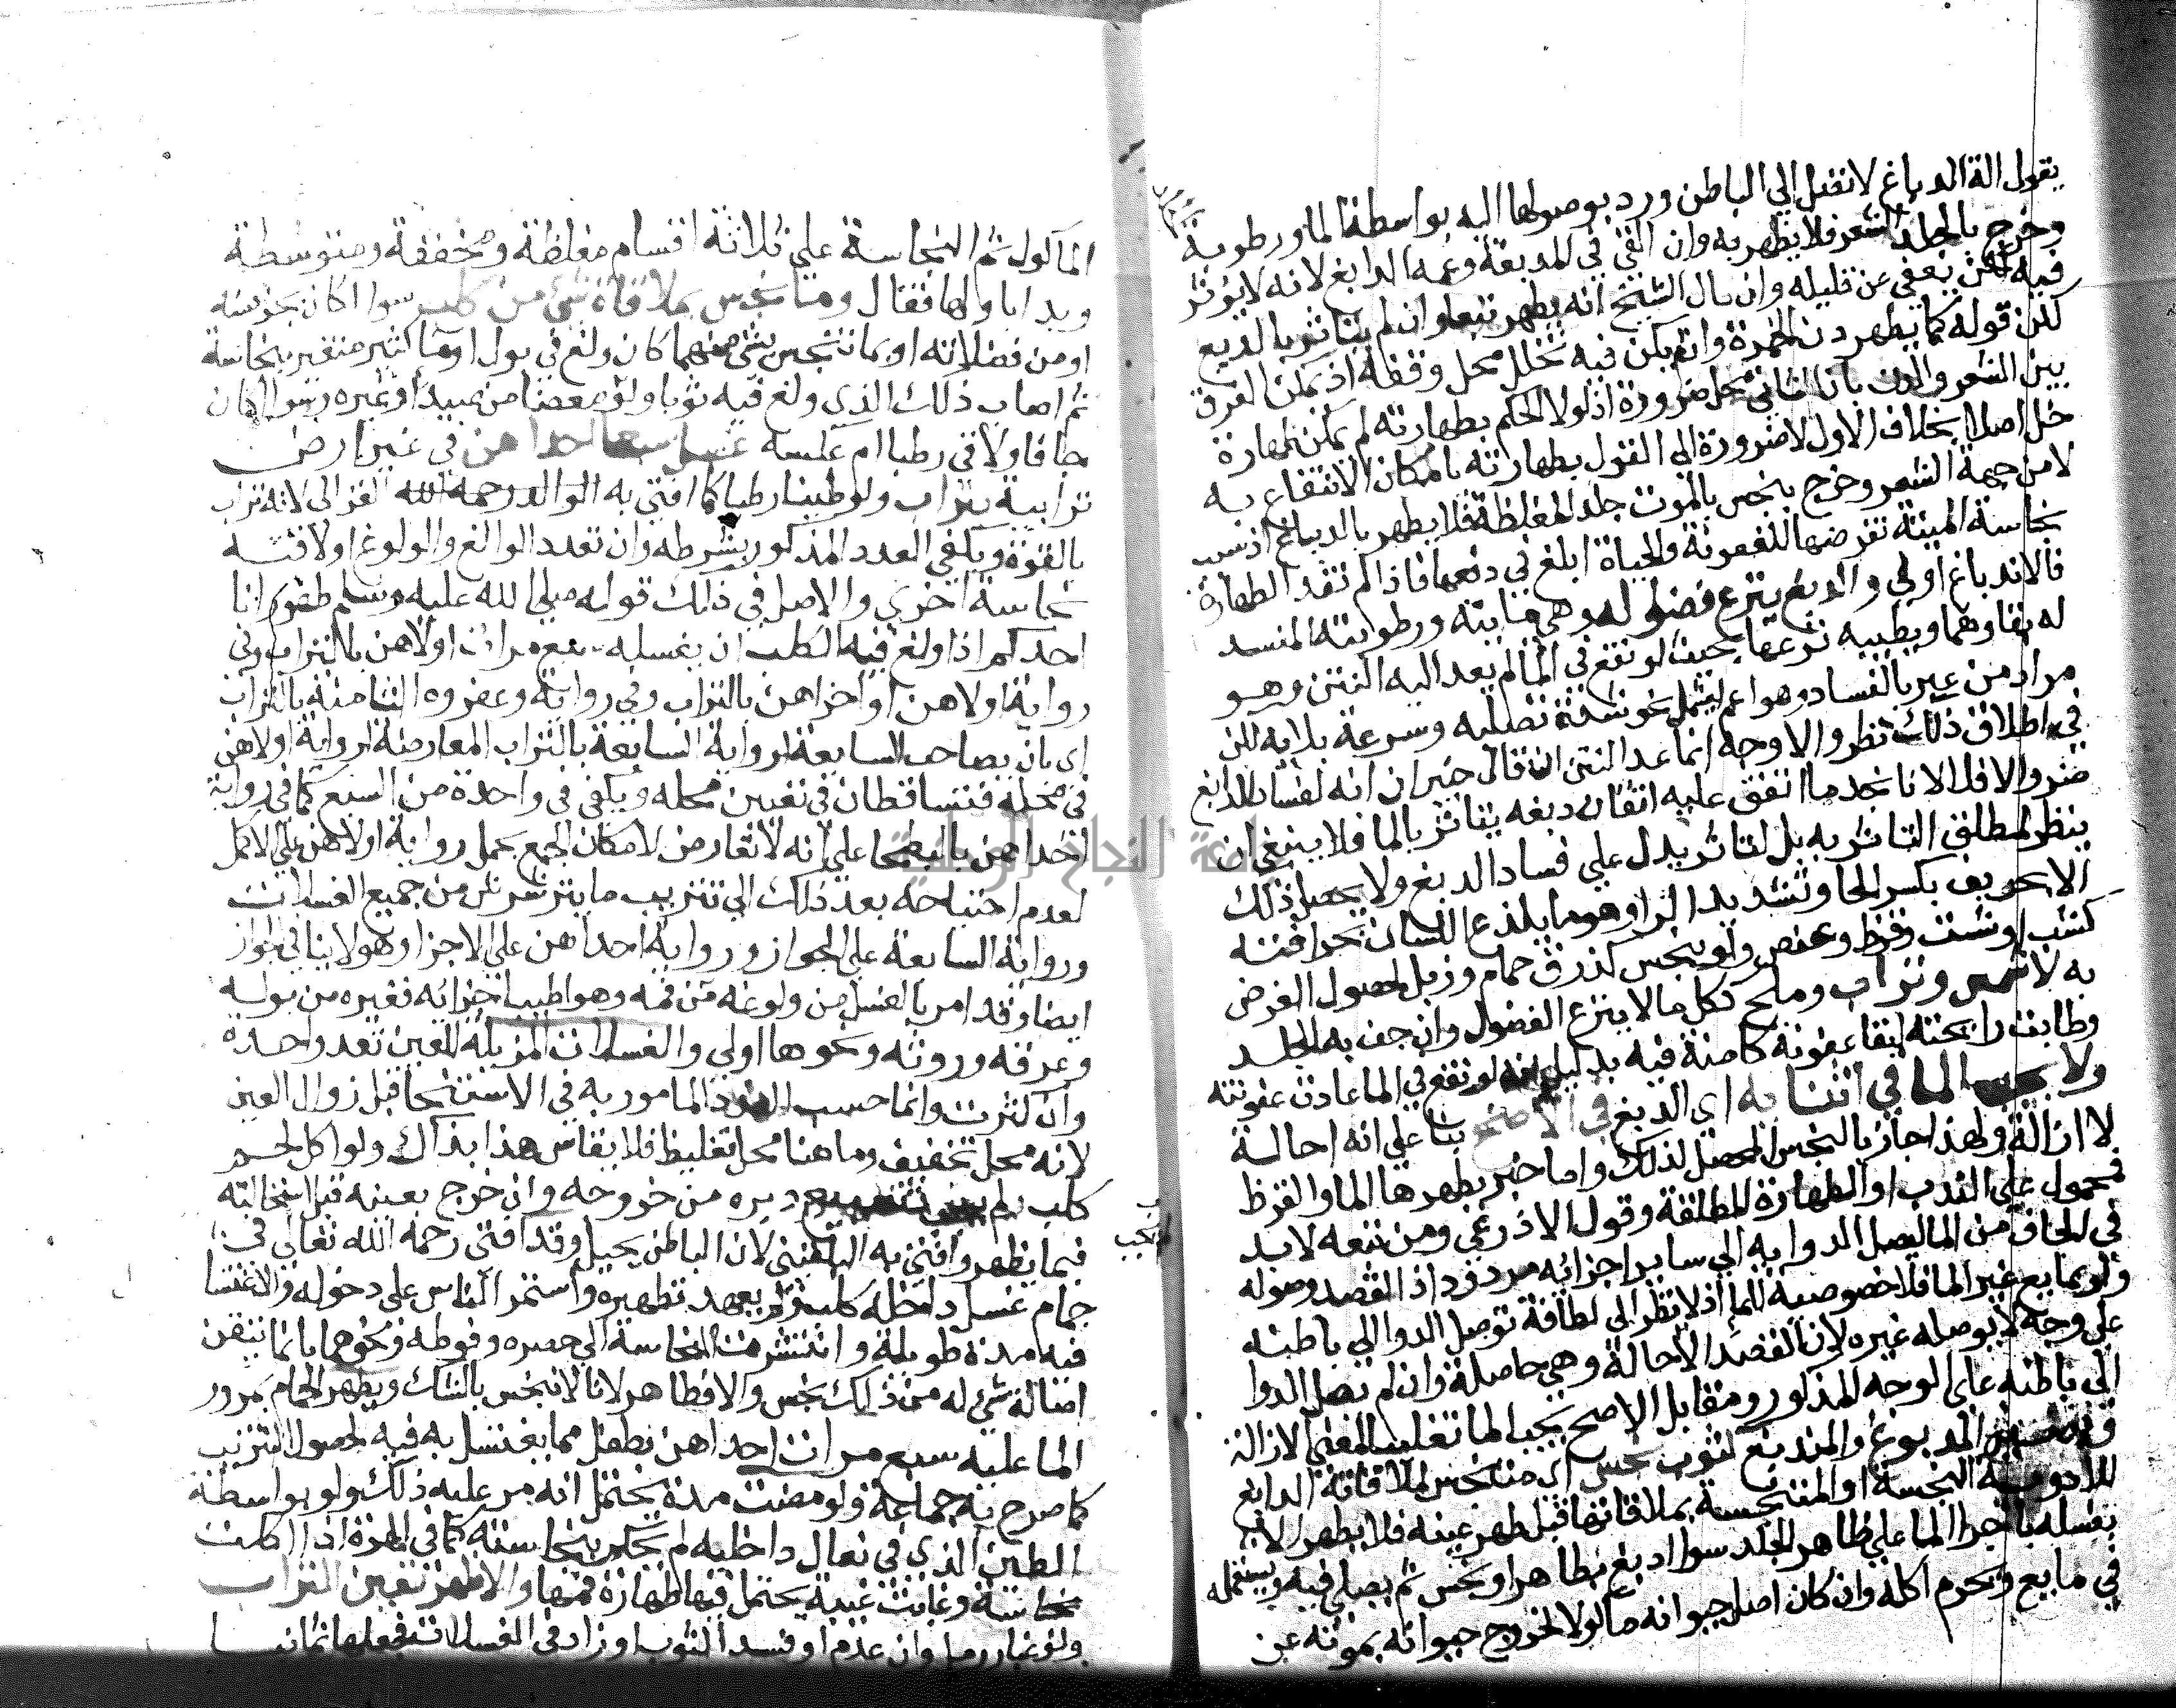 يقول الة الدباغ لا تقبل الي الباطن ورد بوصولها اليه بواسطة الما ورطوبة
وخرج بالجلد الشعر فلا يطهر به وان القي في المدبغة وعمه الدابغ لانه لا يوثر
فيه لكن يعفي عن قليله وان قال الشيخ انه يطهر تبعا وان لم يتاثر بالدبغ
كدن قوله كما يطهر دن الخمرة وان لم يكن فيه تخلل محل وقفة اذ يمكن الفرق
بين الشعر والدن بان الثاني محل ضرورة اذ لولا الحكم بطهارته لم يمكن طهارة
خل اصلا بخلاف الاول لا ضرورة الي القول بطهارته بامكان الانتفاع به
لا من جهة الشعر وخرج بنجس بالموت جلد المغلظة فلا يطهر بالدباغ اذ سبب
نجاسة الميتة تعرضها للعفونة والحياة ابلغ في دفعها فاذا لم تفد الطهارة
فالاندباغ اولي والدبغ نزع فضوله وهي مايته ورطوبته المفسد
له بقاوهما ويطيبه نزعها بحيث لو نقع في الما لم يعد اليه النتن وهو
مراد من عبر بالفساد وهو اعم ليشمل نحو شدة تصلبه وسرعة بلايه لكن
في اطلاق ذلك نظر والاوجه انما عدا النتن ان قال خبيران انه لفساد الدبغ
ضر والا فلا لانا نجد ما اتفق عليه اتقان دبغه يتاثر بالما فلا ينبغي ان
ينظر لمطلق التاثر به بل لتاثر يدل علي فساد الدبغ ولا يحصل ذلك
الا بحريف بكسر الحا وتشديد الرا وهو ما يلذع اللسان بحرافته
كشب او شث وقرظ وعفص ولو بنجس كذرق حمام وزبل لحصول الغرض
به لا شمس وتراب وملح وكل ما لا ينزع الفضول وان جف به الجلد
وطابت رائحته لبقا عفونة كامنة فيه بدليل انه لو نقع في الما عادت عفونته
ولا يجب الما في اثنايه اي الدبغ في الاصح بنا علي انه احالة
لا ازالة ولهذا جاز بالنجس المحصل لذلك واما خبر يطهرها الما والقرظ
فمحمول علي الندب او الطهارة المطلقة وقول الاذرعي ومن تبعه لا بد
في الجاف من الما ليصل الدوا به الي ساير اجزايه مردود اذ القصد وصوله
ولو بمايع غير الما فلا خصوصية للما اذ لا نظر الي لطافة توصل الدوا الي باطنه
علي وجه لا يوصله غيره لان القصد الاحالة وهي حاصلة وان لم يصل الدوا
الي باطنه علي الوجه المذكور ومقابل الاصح يجب الما تغليبا لمعني الازالة
والمدبوغ والمندبغ كثوب نجس اي متنجس لملاقاته الدابغ
للادوية النجسة او المتنجسة بملاقاتها قبل طهر عينه فلا يطهر الا
بغسله باجرا الما علي ظاهر الجلد سوا ادبغ بطاهر او نجس ثم يصلي فيه ويستعمله
في مايع ويحرم اكله وان كان اصل حيوانه ماكولا لخروج حيوانه بموته عن
الماكول ثم النجاسة علي ثلاثة اقسام مغلظة ومخففة ومتوسطة
وبدا باولها فقال وما نجس بملاقاة شي من كلب سوا اكان بجزئه
او من فضلاته او بما تنجس بشي منهما كان ولغ في بول او ما كثير متغير بنجاسة
ثم اصاب ذلك الذي ولغ فيه ثوبا ولو معضا من صيد او غيره وسوا كان
جافا ولاقي رطبا ام عكسه غسل سبعا احداهن في غير ارض
ترابية بتراب ولو طينا رطبا كما افتي به الوالد رحمه الله الغزالي لانه تراب
بالقوة ويكفي العدد المذكور بشرطه وان تعدد الوالغ والولوغ او لاقته
نجاسة اخري والاصل في ذلك قوله صلي الله عليه وسلم طهور انا
احدكم اذا ولغ فيه الكلب ان يغسله سبع مرات اولاهن بالتراب وفي
رواية اولاهن او اخراهن بالتراب وفي رواية وعفروه الثامنة بالتراب
اي بان يصاحب السابعة لرواية السابعة بالتراب المعارضة لرواية اولاهن
في محله فتتساقطان في تعيين محله ويكفي في واحدة من السبع كما في رواية
احداهن بالبطحا علي انه لا تعارض لامكان الجمع بحمل رواية اولاهن علي الاكمل
لعدم احتياجه بعد ذلك الي تتريب ما يترشرش من جميع الغسلات
ورواية السابعة علي الجواز ورواية احداهن علي الاجزا وهو لا ينافي الجواز
ايضا وقد امر بالغسل من ولوغه من فمه وهو اطيب اجزائه فغيره من بوله
وعرقه وروثه ونحوها اولي والغسلات المزيلة للعين تعد واحدة
وان كثرت وانما حسب العدد المامور به في الاستنجا قبل زوال العين
لانه محل تخفيف وما هنا محل تغليظ فلا يقاس هذا بذاك ولو اكل لحم
كلب لم يجب تسبيع دبره من خروجه وان خرج بعينه قبل استحالته
فيما يظهر وافتي به البلقيني لان الباطن يحيل وقد افتي رحمه الله تعالي في
حمام غسل داخله كلب ولم يعهد تطهيره واستمر الناس علي دخوله والاغتسا
فيه مدة طويلة وانتشرت النجاسة الي حصره وفوطه ونحوهما بانما تيقن
اصابة شي له من ذلك نجس والا فطاهر لانا لا ننجس بالشك ويطهر الحمام بمرور
الما عليه سبع مرات احداهن بطفل مما يغتسل به فيه لحصول التتريب
كما صرح به جماعة ولو مضت مدة يحتمل انه مر عليه ذلك ولو بواسطة
الطين الذي في نعال داخليه لم يحكم بنجاسته كما في الهرة اذا اكلت
نجاسة وغابت غيبة يحتمل فيها طهارة فمها والاظهر تعين التراب
ولو غبار رمل وان عدم او فسد الثوب او زاد في الغسلات فجعلها ثمانيا